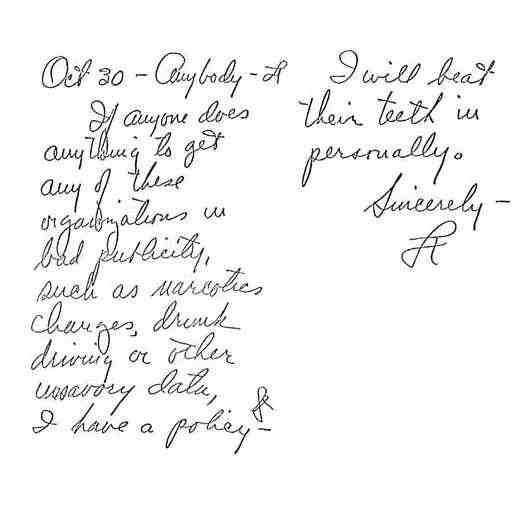 Oct 30 - Anybody -
If anyone does
anything to get
any of these
organizations in
bad publicity,
such as narcotics
charges, drunk
driving or other
unsavory data,
I have a policy -
I will beat
their teeth in
personally.
Sincerely -